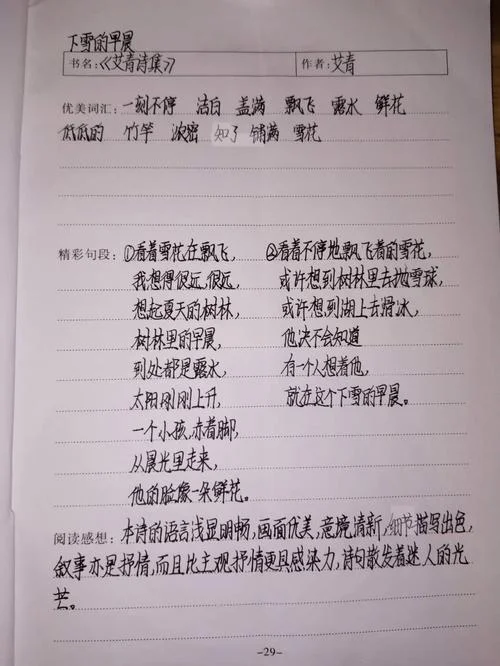 下雪的早晨
书名:《艾青诗集》 作者:艾青
优美词汇: 一刻不停 洁白 盖满 飘飞 露水 鲜花
低低的 竹竿 浓密 知了 铺满 雪花
精彩句段: ①看着雪花在飘飞,
我想得很远,很远,
想起夏天的树林,
树林里的早晨,
到处都是露水,
太阳刚刚上升,
一个小孩,赤着脚,
从晨光里走来,
他的脸像一朵鲜花。
②看着不停地飘飞着的雪花,
或许想到树林里去抛雪球,
或许想到湖上去滑冰,
他决不会知道
有一个人想着他,
就在这个下雪的早晨。
阅读感想: 本诗的语言浅显明畅,画面优美,意境清新,细节描写出色,
叙事亦是抒情,而且比主观抒情更具感染力,诗句散发着迷人的光
芒。
-29-